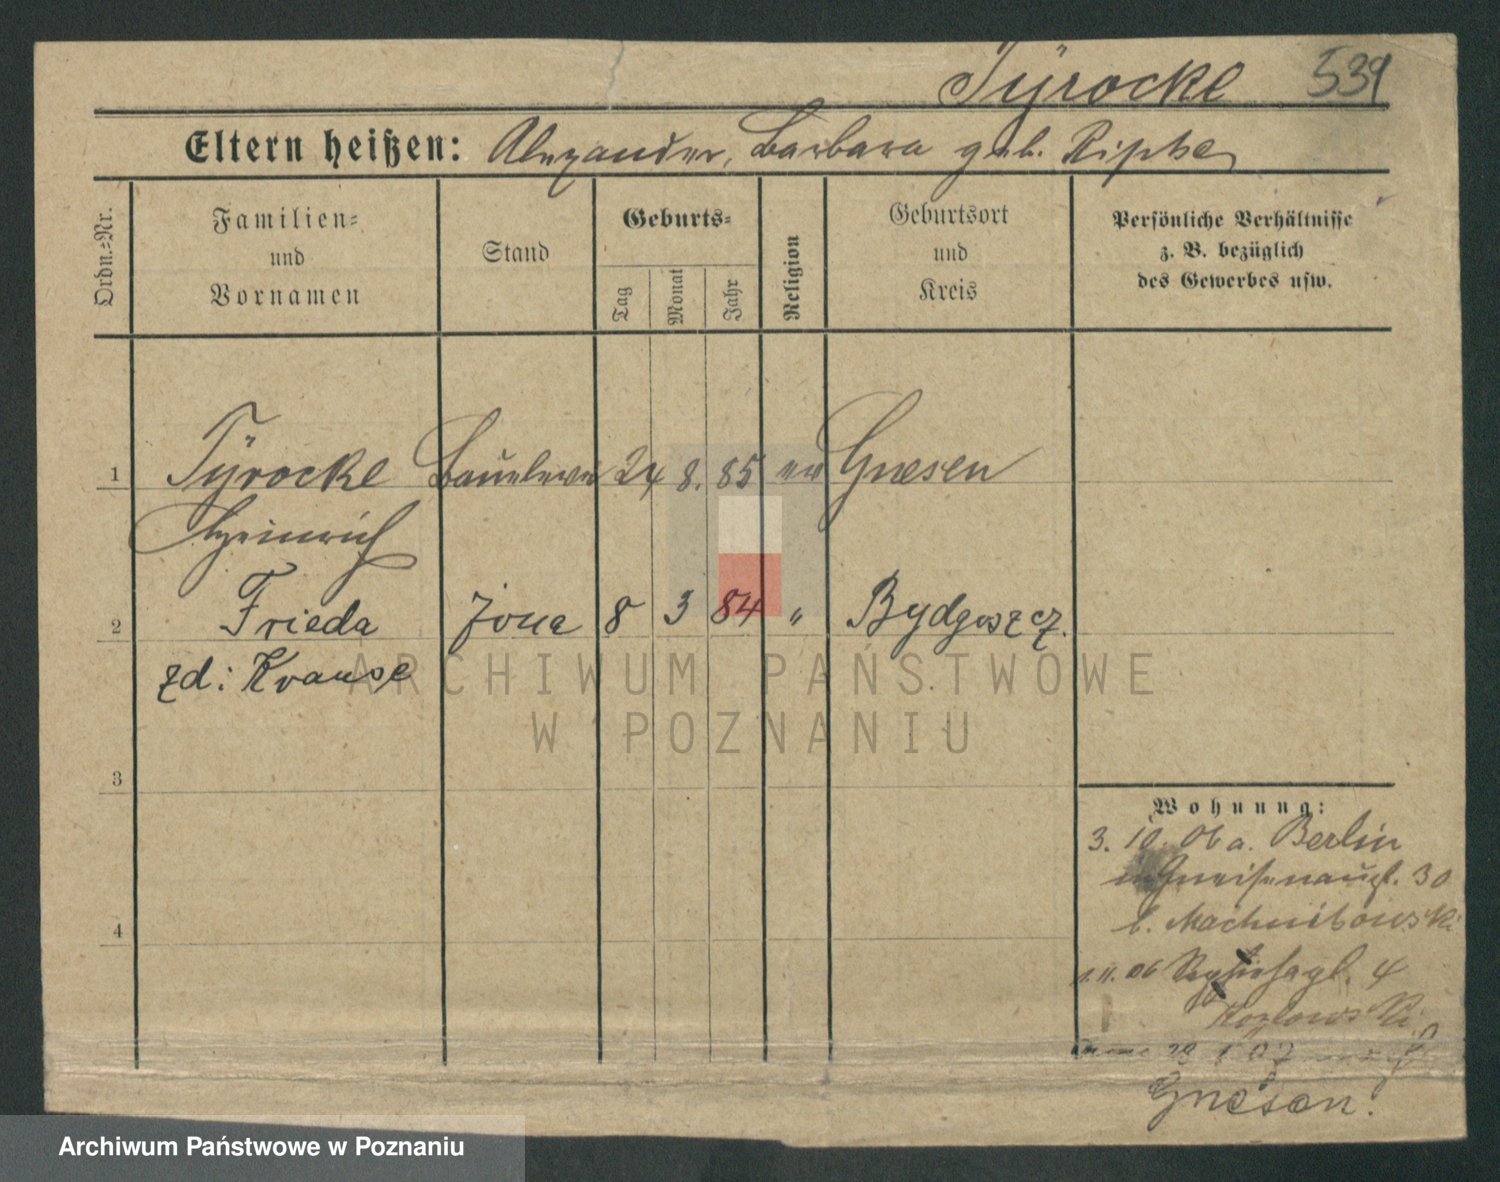 Tÿrocke 539
Eltern heißen: Alexander, Barbara geb. Ripke
Ordn.=Nr.
Familien=
und
Vornamen
Stand
Geburts=
Tag
Monat
Jahr
Religion
Geburtsort
und
Kreis
Persönliche Verhältnisse
z. B. bezüglich
des Gewerbes usw.
1 Tÿrocke 24 8. 85 ev Gnesen
Heinrich
2 Frieda żona 8 3 84 " Bydgoszcz.
zd: Krause
3
4
Wohnung:
3. 10. 06 a. Berlin
Gneisenaustr. 30
b. Machnikowski
1. 11. 06 4
Kozlowski
Gnesen.
ARCHIWUM PAŃSTWOWE
W POZNANIU
Archiwum Państwowe w Poznaniu